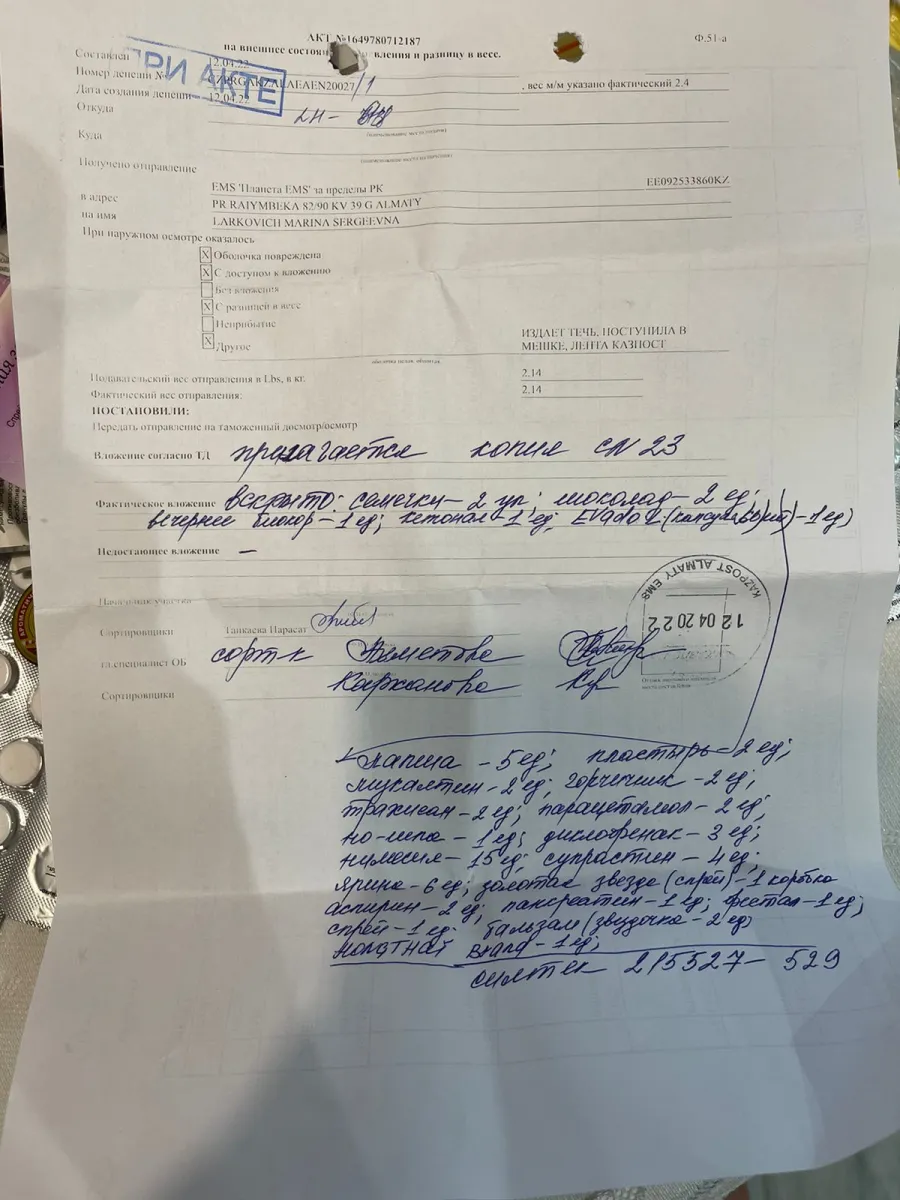 АКТ №1649780712187
Ф.51-а
на внешнее состоя вления и разницу в весе.
Составлен 12.04.22
РИ АКТЕ
Номер депеши № AEN20027/1 , вес м/м указано фактический 2.4
Дата создания депеши 12.04.22
Откуда
Куда
Получено отправление
EMS 'Планета EMS' за пределы РК EE092533860KZ
в адрес PR RAIYMBEKA 82/90 KV 39 G ALMATY
на имя LARKOVICH MARINA SERGEEVNA
При наружном осмотре оказалось
X Оболочка повреждена
X С доступом к вложению
Без вложения
X С разницей в весе
Неприбытие
X Другое ИЗДАЕТ ТЕЧЬ, ПОСТУПИЛА В
МЕШКЕ, ЛЕНТА КАЗПОСТ
Подавательский вес отправления в Lbs, в кг. 2.14
Фактический вес отправления: 2.14
ПОСТАНОВИЛИ:
Передать отправление на таможенный досмотр/осмотр
Вложение согласно ТД прилагается копия CN 23
Фактическое вложение вскрыто: семечки - 2 уп; шоколад - 2 ед;
вечернее - 1 ед; кетонал - 1 ед; - 1 ед)
Недостающее вложение —
Начальник участка
KAZPOST ALMATY EMS
12 04 20 22
Сортировщики Танкаева Парасат
гл.специалист ОБ сорт-к Ахметова
Сортировщики Каржанова
лапша - 5 ед; пластырь - 2 ед;
мукалтин - 2 ед; горчичник - 2 ед;
трахисан - 2 ед; парацетамол - 2 ед;
но-шпа - 1 ед; диклофенак - 3 ед;
нимесил - 15 ед; супрастин - 4 ед;
ярина - 6 ед; золотая звезда (спрей) - 1 коробка
аспирин - 2 ед; панкреатин - 1 ед; фестал - 1 ед;
спрей - 1 ед. бальзам (звездочка - 2 ед)
- 1 ед;
215527 - 529